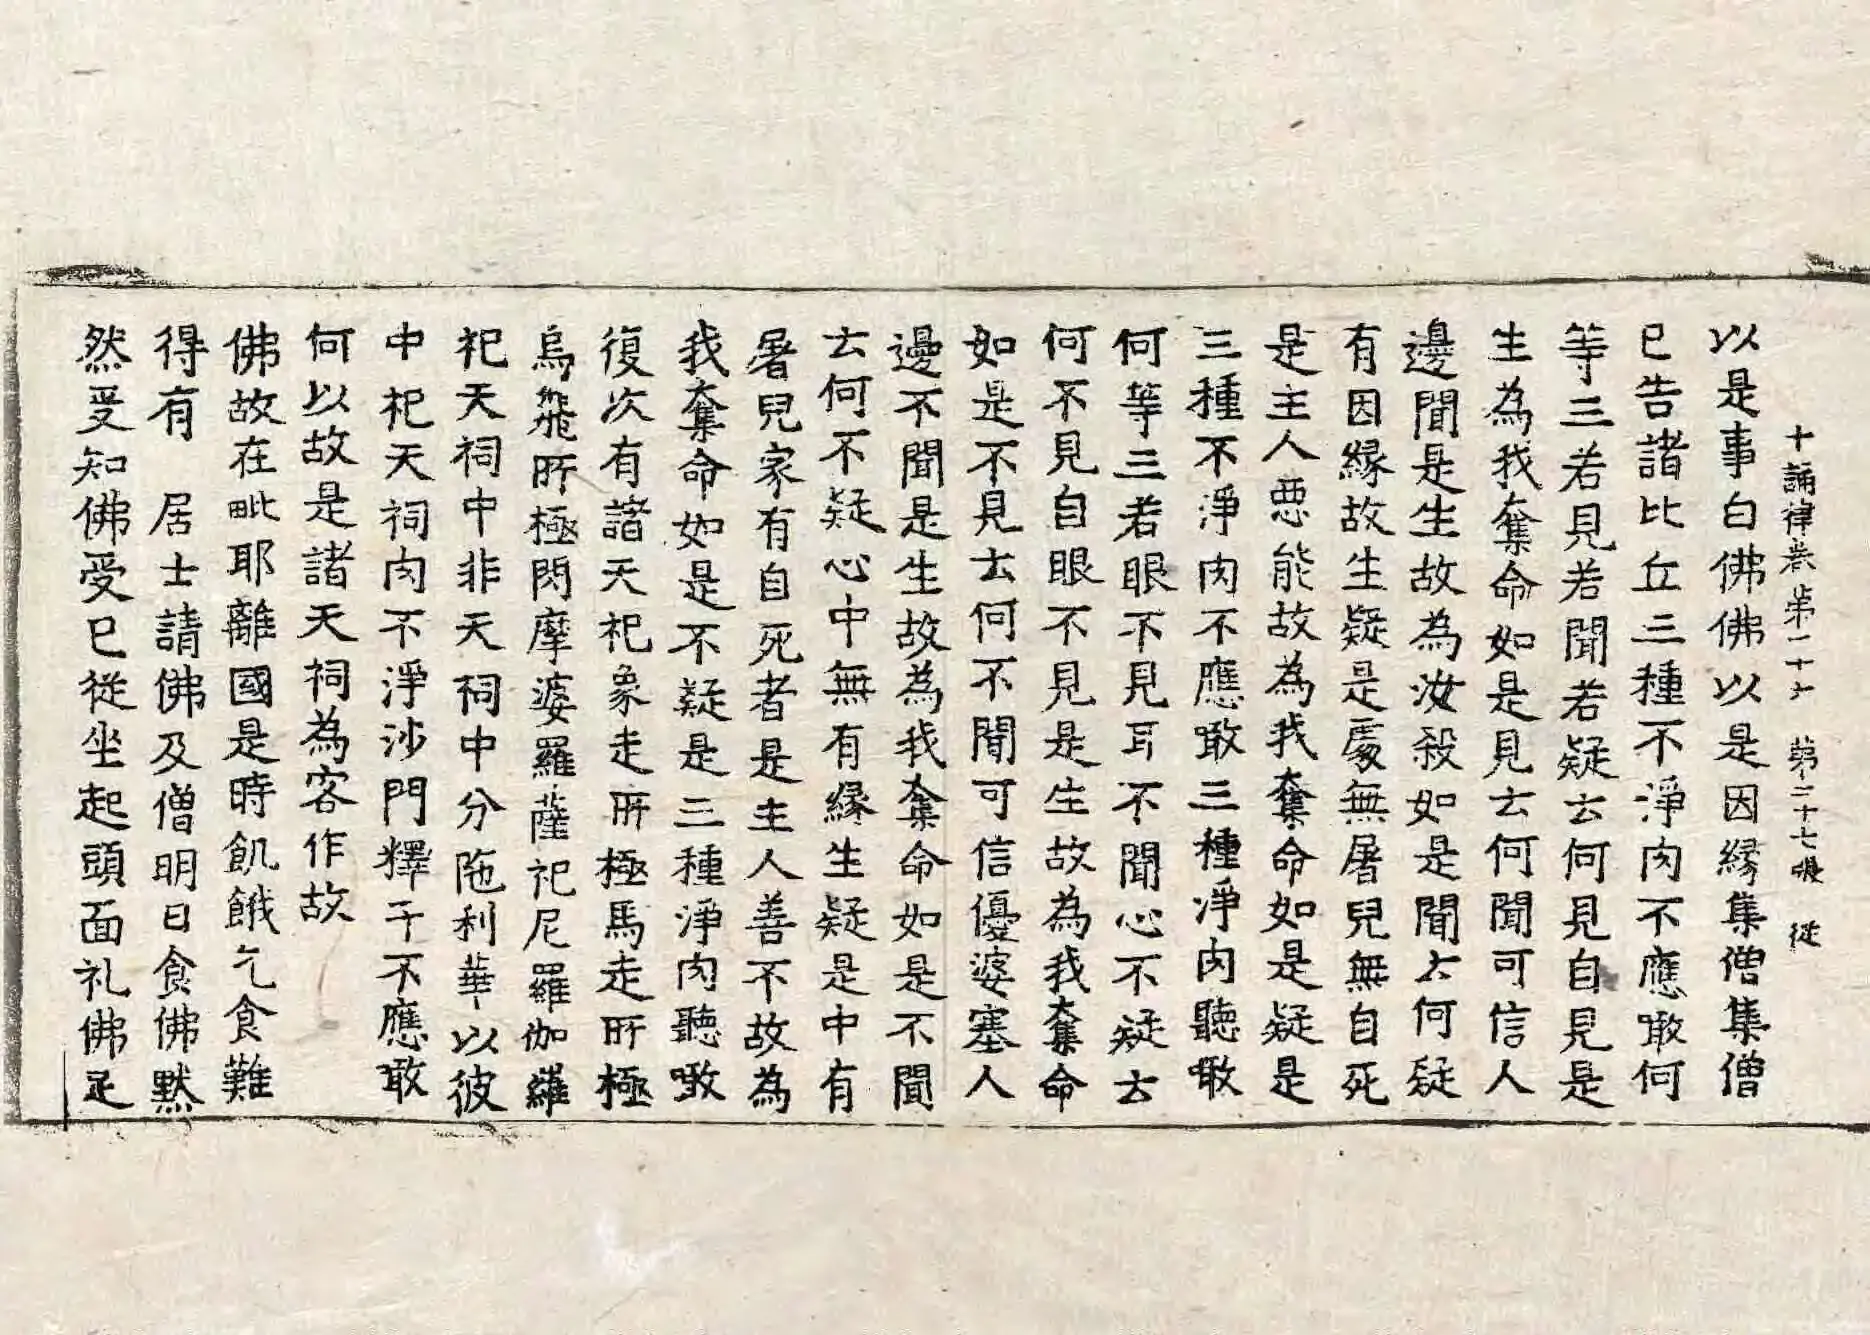 十誦律卷苐二十六 苐二十七張 從
以是事白佛佛以是因緣集僧集僧
已告諸比丘三種不淨肉不應噉何
等三若見若聞若疑云何見自見是
生為我奪命如是見云何聞可信人
邊聞是生故為汝殺如是聞云何疑
有因緣故生疑是處無屠兒無自死
是主人惡能故為我奪命如是疑是
三種不淨肉不應噉三種淨肉聽噉
何等三若眼不見耳不聞心不疑云
何不見自眼不見是生故為我奪命
如是不見云何不聞可信優婆塞人
邊不聞是生故為我奪命如是不聞
云何不疑心中無有緣生疑是中有
屠兒家有自死者是主人善不故為
我奪命如是不疑是三種淨肉聽噉
復次有諸天祀象走所極馬走所極
烏飛所極閃摩婆羅薩祀尼羅伽羅
祀天祠中非天祠中分陁利華以彼
中祀天祠肉不淨沙門釋子不應噉
何以故是諸天祠為客作故
佛故在毗耶離國是時飢餓乞食難
得有 居士請佛及僧明日食佛默
然受知佛受已從坐起頭面礼佛足